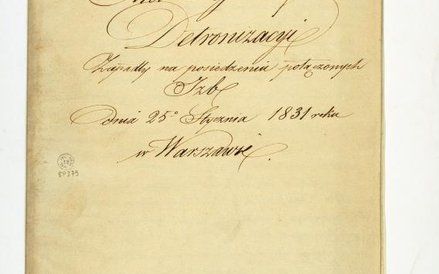 Detronizacyi
Zapadły na posiedzeniu połączonych
Izb
dnia 25º Stycznia 1831 roku
w Warszawie.
BP 375